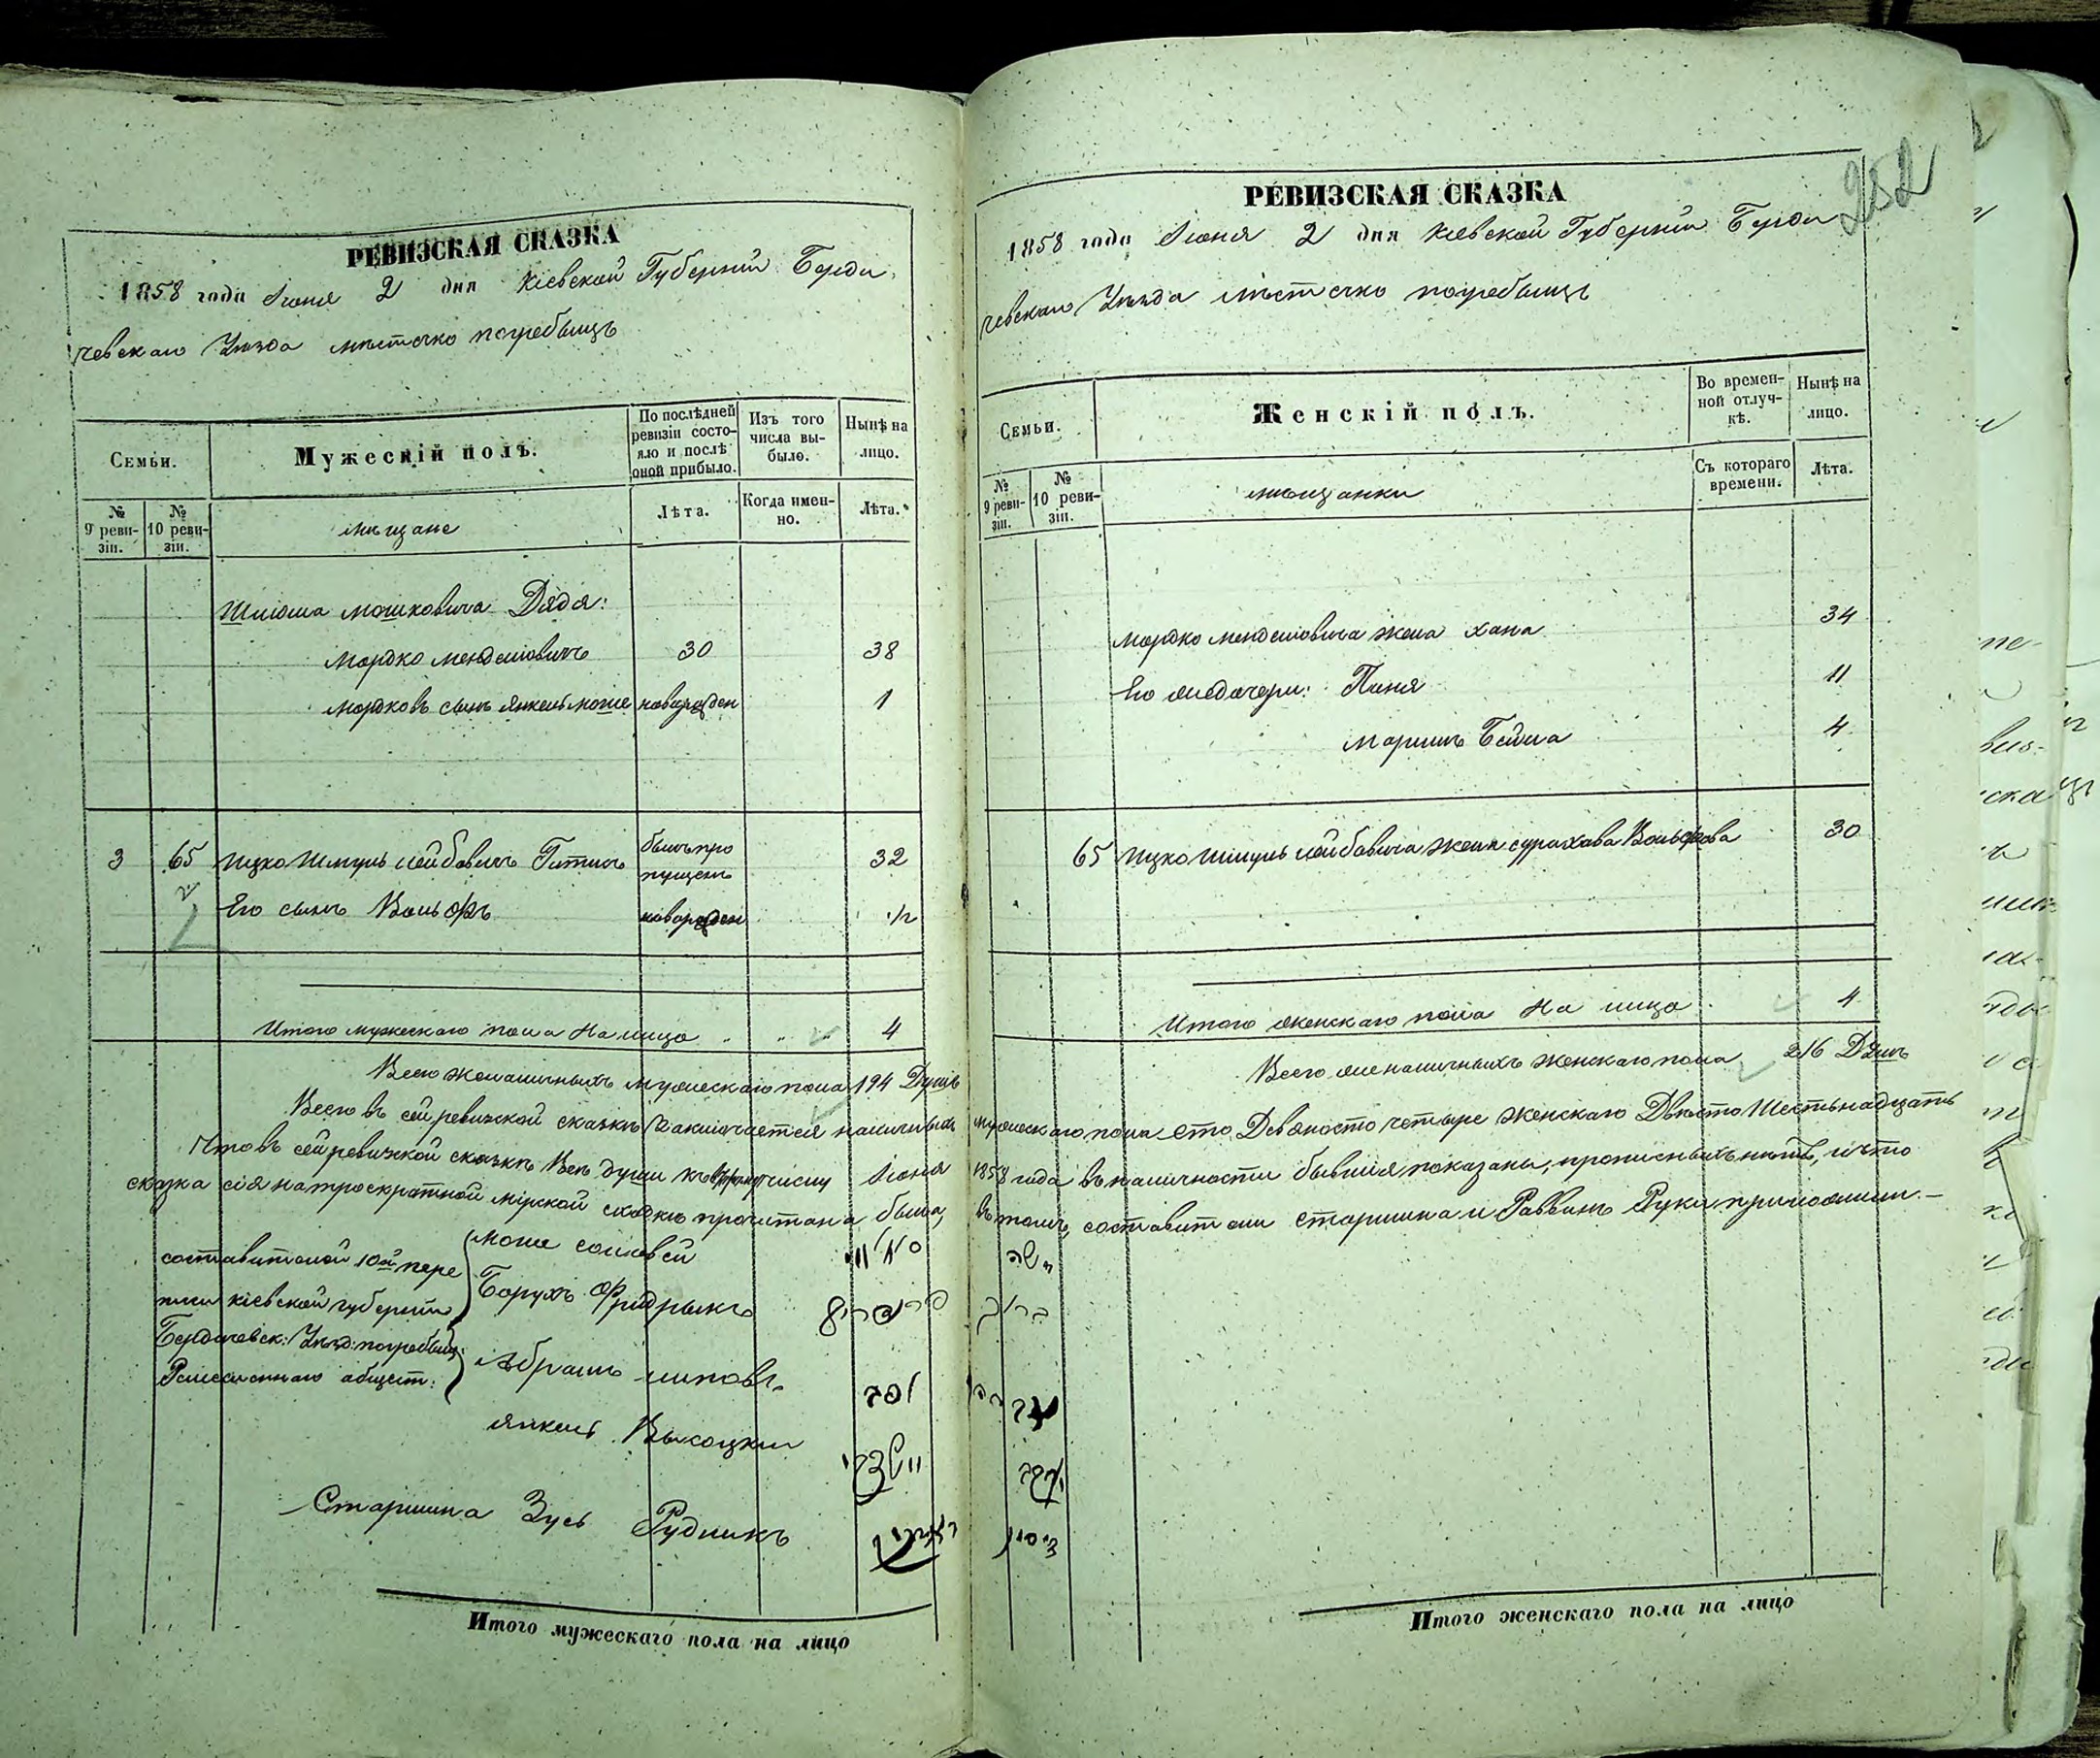 РЕВИЗСКАЯ СКАЗКА
1858 года Іюня 2 дня Кіевской Губерніи Берди
чевскаго Уѣзда мѣстечко погребыщь
Семьи.
Мужескій полъ.
По послѣдней ревизіи состояло и послѣ оной прибыло.
Изъ того числа выбыло.
Нынѣ на лицо.
№ 9 ревизіи.
№ 10 ревизіи.
мѣщане
Лѣта.
Когда именно.
Лѣта.
Шлиома мошковича Дядя:
мордко менделiовичъ 30 38
мордковъ сынъ янкель моше новорожден 1
3 65 ицко Шмуль лейбовичъ Гитикъ былъ пропущенъ 32
Его сынъ Вольфъ новорожден ½
Итого мужескаго пола На лицо 4
Всего же наличныхъ мужескаго пола 194 Душъ
Всего въ сей ревизкой сказкѣ Заключается наличныхъ
Что въ сей ревизкой сказкѣ Всѣ души къ числу Іюня
сказка сія на троекратной мірской сходкѣ прочитана была,
составителей 10й пере
писи кіевской губерніи
Бердичевск: Уѣзд: погребыщ:
Ремесленнаго общест:
моше соловей
Борухъ Фридрыхъ
Абрамъ липовъ
янкель Высоцкии
Старшина Зусь Рудникъ
Итого мужескаго пола на лицо
252
РЕВИЗСКАЯ СКАЗКА
1858 года Іюня 2 дня Кіевской Губерніи Берди
чевскаго Уѣзда мѣстечко погребыщь
Семьи.
Женскій полъ.
Во временной отлучкѣ.
Нынѣ на лицо.
№ 9 ревизіи.
№ 10 ревизіи.
мѣщанки
Съ котораго времени.
Лѣта.
мордко менделiовича жена хана 34
Его же дочери: Пиня 11
маріимъ Бейла 4
65 ицко Шмуль лейбовича жена сура хава Вольфова 30
Итого женскаго пола На лицо 4
Всего же наличныхъ женскаго пола 216 Душъ
мужескаго пола сто Девяносто четыре женскаго Двѣсто Шестьнадцать
1858 года въ наличности бывшія показаны, прописныхъ нѣтъ, и что
въ томъ, составители старшина и Раввинъ Руки приложили.—
משה
ברוך
Итого женскаго пола на лицо